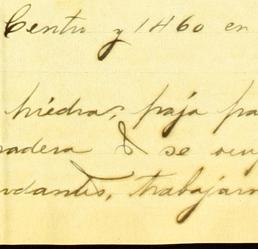 Centro y 1460 en
piedra, paja pa
madera & se ocup
udantes, trabajarn